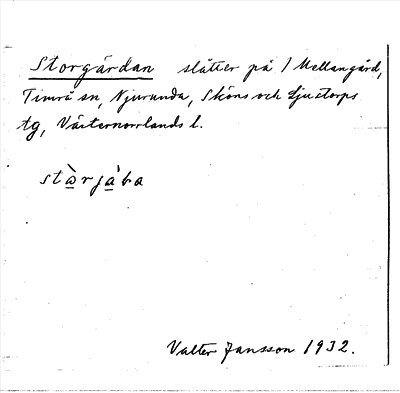 Storgårdan slåtter på 1 Mellangård,
Timrå sn, Njurunda, Sköns och Ljustorps
tg, Västernorrlands l.
stàrjába
Valter Jansson 1932.